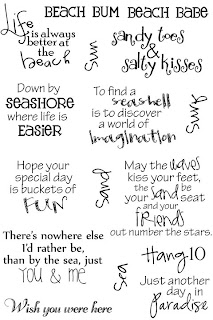 BEACH BUM
BEACH BABE
Life
is always
better at
the
beach
sun
sandy toes
&
salty kisses
Down by
SEASHORE
where life is
EASIER
To find a
seashell
is to discover
a world of
imagination
Hope your
special day
is buckets of
FUN
sand
May the waves
kiss your feet,
the sand be
your seat
and your
friends
out number the stars.
There's nowhere else
I'd rather be,
than by the sea, just
YOU & ME
sea
Hang 10
Just another
day in
Paradise
Wish you were here